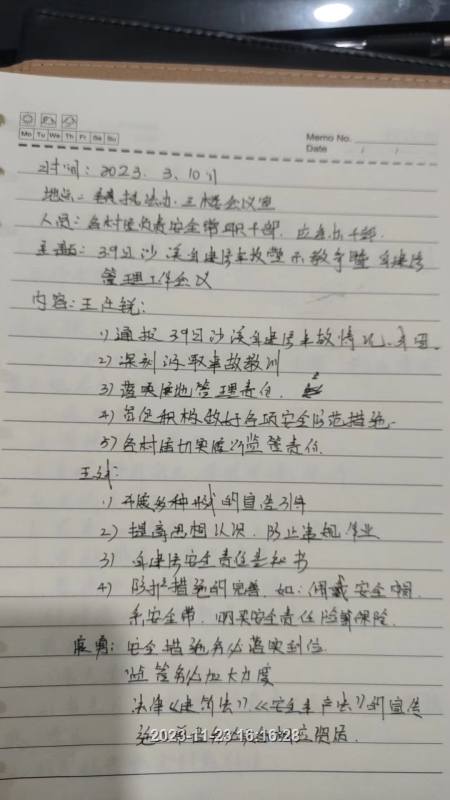 Mo Tu We Th Fr Sa Su
Memo No.
Date / /
时间：2023. 3. 10
地点：镇执法办 三楼会议室
人员：各村居负责安全带职干部、应急办干部
主题：3.9日沙溪自建房事故警示教育暨自建房
管理工作会议
内容：
1) 通报3.9日沙溪自建房事故情况、原因。
2) 深刻汲取事故教训
3) 落实属地管理责任.
4) 责任积极做好各项安全防范措施.
5) 各村居切实履行监管责任.
王斌：
1) 开展多种形式的宣传引导
2) 提高思想认识、防止违规作业
3) 自建房安全责任告知书
4) 防护措施的完善、如：佩戴安全帽、
系安全带、购买安全责任险等保险.
安全措施务必落实到位
监管务必加大力度
法律《建筑法》、《安全生产法》的宣传
2023-11-23 16:16:28